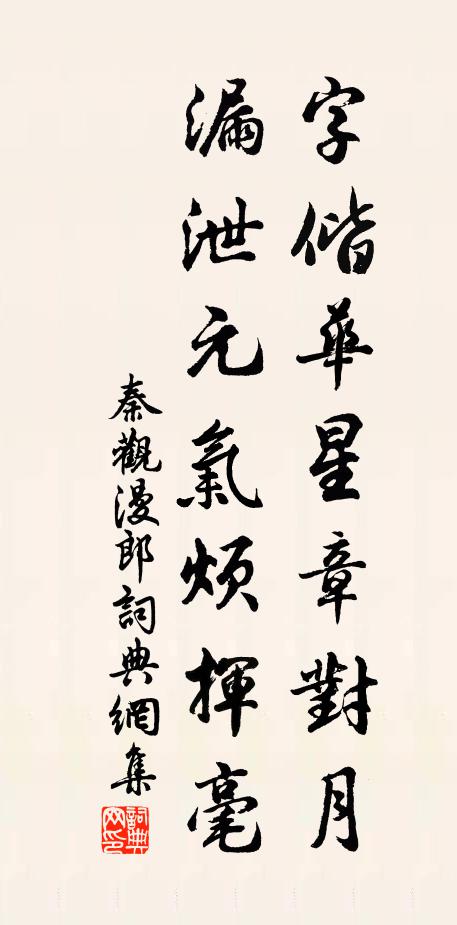 字偕華星章對月
漏泄元氣煩揮毫
秦觀漫郎詞典網集
詞典網印